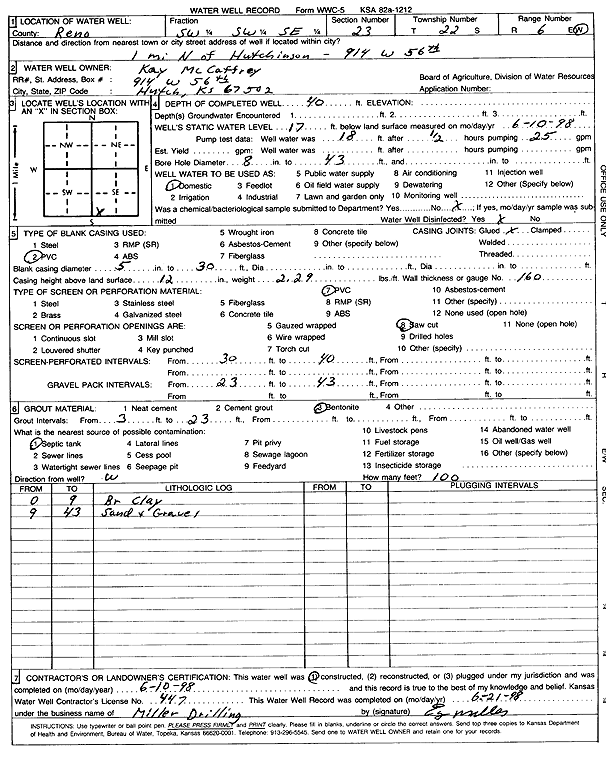 WATER WELL RECORD Form WWC-5 KSA 82a-1212
1 LOCATION OF WATER WELL: Fraction Section Number Township Number Range Number
County: Reno SW ¼ SW ¼ SE ¼ 23 T 22 S R 6 E/W
Distance and direction from nearest town or city street address of well if located within city?
1 mi N of Hutchinson - 914 W 56th
2 WATER WELL OWNER: Kay McCaffrey
RR#, St. Address, Box # : 914 W 56th Board of Agriculture, Division of Water Resources
City, State, ZIP Code : Hutch, KS 67502 Application Number:
3 LOCATE WELL'S LOCATION WITH AN "X" IN SECTION BOX:
N
NW NE
W E
SW SE
X
S
1 Mile
4 DEPTH OF COMPLETED WELL 40 ft. ELEVATION:
Depth(s) Groundwater Encountered 1. ft. 2. ft. 3. ft.
WELL'S STATIC WATER LEVEL 17 ft. below land surface measured on mo/day/yr 6-10-98
Pump test data: Well water was 18 ft. after 1/2 hours pumping 25 gpm
Est. Yield gpm: Well water was ft. after hours pumping gpm
Bore Hole Diameter 8 in. to 43 ft., and in. to ft.
WELL WATER TO BE USED AS: 5 Public water supply 8 Air conditioning 11 Injection well
1 Domestic 3 Feedlot 6 Oil field water supply 9 Dewatering 12 Other (Specify below)
2 Irrigation 4 Industrial 7 Lawn and garden only 10 Monitoring well
Was a chemical/bacteriological sample submitted to Department? Yes No X; If yes, mo/day/yr sample was submitted
Water Well Disinfected? Yes X No
5 TYPE OF BLANK CASING USED: 5 Wrought iron 8 Concrete tile CASING JOINTS: Glued X Clamped
1 Steel 3 RMP (SR) 6 Asbestos-Cement 9 Other (specify below) Welded
2 PVC 4 ABS 7 Fiberglass Threaded
Blank casing diameter 5 in. to 30 ft., Dia in. to ft., Dia in. to ft.
Casing height above land surface 12 in., weight 2.29 lbs./ft. Wall thickness or gauge No. 160
TYPE OF SCREEN OR PERFORATION MATERIAL: 7 PVC 10 Asbestos-cement
1 Steel 3 Stainless steel 5 Fiberglass 8 RMP (SR) 11 Other (specify)
2 Brass 4 Galvanized steel 6 Concrete tile 9 ABS 12 None used (open hole)
SCREEN OR PERFORATION OPENINGS ARE: 5 Gauzed wrapped 8 Saw cut 11 None (open hole)
1 Continuous slot 3 Mill slot 6 Wire wrapped 9 Drilled holes
2 Louvered shutter 4 Key punched 7 Torch cut 10 Other (specify)
SCREEN-PERFORATED INTERVALS: From 30 ft. to 40 ft., From ft. to ft.
From ft. to ft., From ft. to ft.
GRAVEL PACK INTERVALS: From 23 ft. to 43 ft., From ft. to ft.
From ft. to ft., From ft. to ft.
6 GROUT MATERIAL: 1 Neat cement 2 Cement grout 3 Bentonite 4 Other
Grout Intervals: From 3 ft. to 23 ft., From ft. to ft., From ft. to ft.
What is the nearest source of possible contamination: 10 Livestock pens 14 Abandoned water well
1 Septic tank 4 Lateral lines 7 Pit privy 11 Fuel storage 15 Oil well/Gas well
2 Sewer lines 5 Cess pool 8 Sewage lagoon 12 Fertilizer storage 16 Other (specify below)
3 Watertight sewer lines 6 Seepage pit 9 Feedyard 13 Insecticide storage
Direction from well? W How many feet? 100
FROM TO LITHOLOGIC LOG FROM TO PLUGGING INTERVALS
0 9 Br Clay
9 43 Sand & Gravel
7 CONTRACTOR'S OR LANDOWNER'S CERTIFICATION: This water well was (1) constructed, (2) reconstructed, or (3) plugged under my jurisdiction and was
completed on (mo/day/year) 6-10-98 and this record is true to the best of my knowledge and belief. Kansas
Water Well Contractor's License No. 447 This Water Well Record was completed on (mo/day/yr) 6-21-98
under the business name of Miller Drilling by (signature)
INSTRUCTIONS: Use typewriter or ball point pen. PLEASE PRESS FIRMLY and PRINT clearly. Please fill in blanks, underline or circle the correct answers. Send top three copies to Kansas Department
of Health and Environment, Bureau of Water, Topeka, Kansas 66620-0001. Telephone: 913-296-5545. Send one to WATER WELL OWNER and retain one for your records.
OFFICE USE ONLY
T
R
E/W
SEC.